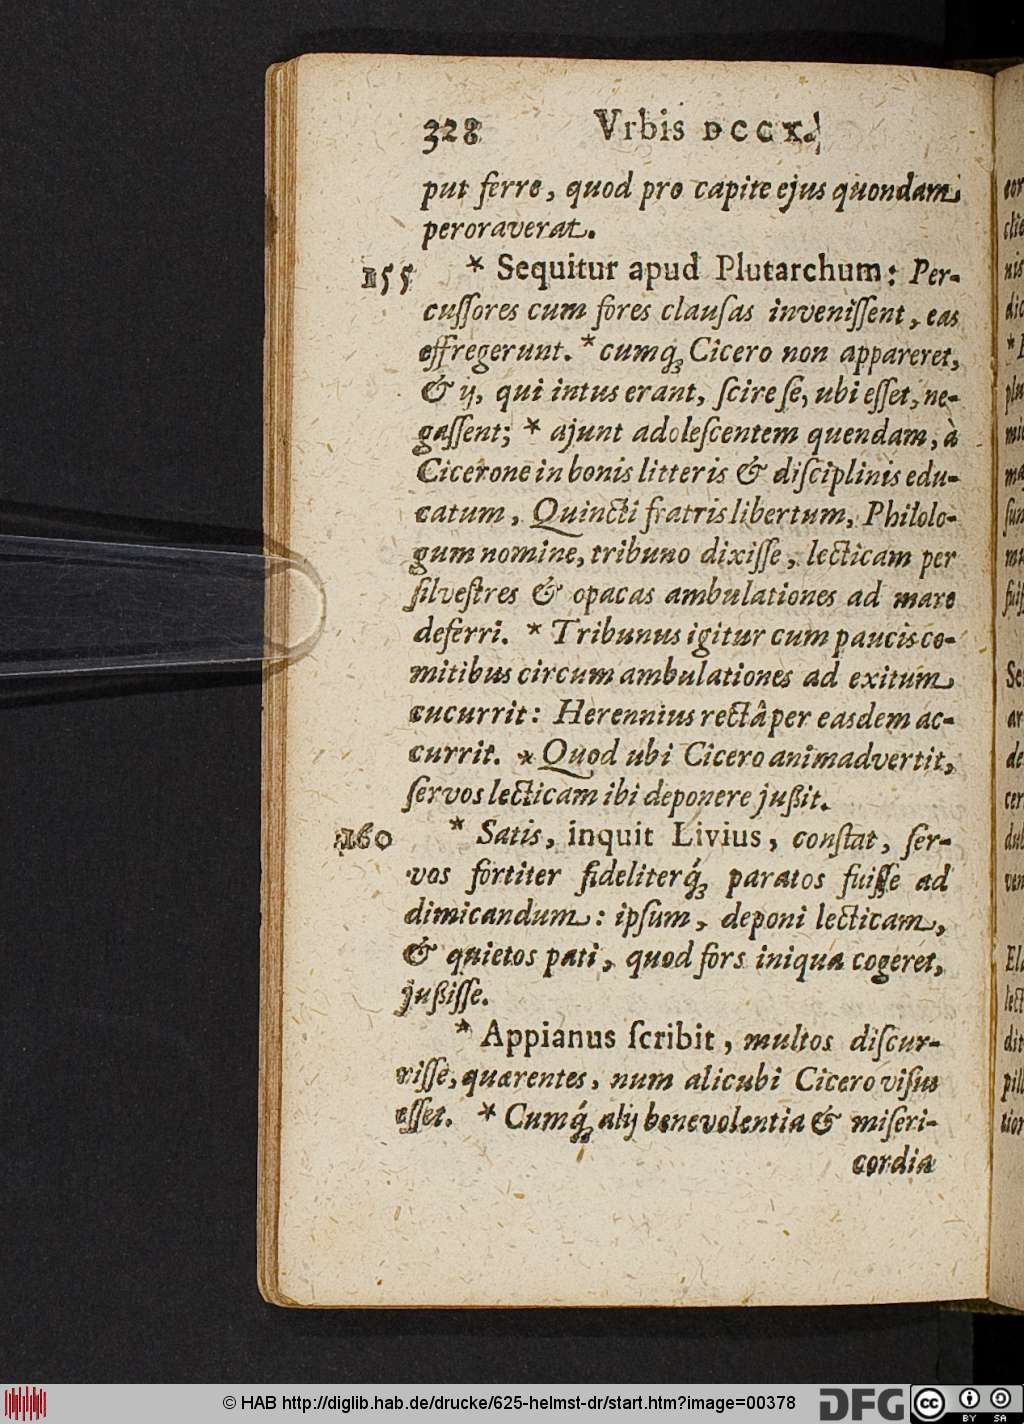 328 Vrbis DCCX.
put ferre, quod pro capite ejus quondam
peroraverat.
155 * Sequitur apud Plutarchum: Per-
cuſſores cum fores clauſas inveniſſent, eas
effregerunt. * cumq́; Cicero non appareret,
& ij, qui intus erant, ſcire ſe, ubi eſſet, ne-
gaſſent; * ajunt adoleſcentem quendam, à
Cicerone in bonis litteris & diſciplinis edu-
catum, Quincti fratris libertum, Philolo-
gum nomine, tribuno dixiſſe, lecticam per
ſilveſtres & opacas ambulationes ad mare
deferri. * Tribunus igitur cum paucis co-
mitibus circum ambulationes ad exitum
cucurrit: Herennius rectâ per easdem ac-
currit. * Quod ubi Cicero animadvertit,
ſervos lecticam ibi deponere jußit.
160 * Satis, inquit Livius, conſtat, ſer-
vos fortiter fideliterq́; paratos fuiſſe ad
dimicandum: ipſum, deponi lecticam,
& quietos pati, quod fors iniqua cogeret,
jußiſſe.
* Appianus ſcribit, multos diſcur-
riſſe, quærentes, num alicubi Cicero viſus
eſſet. * Cumq́; alij benevolentia & miſeri-
cordia
© HAB http://diglib.hab.de/drucke/625-helmst-dr/start.htm?image=00378
DFG
cc BY SA